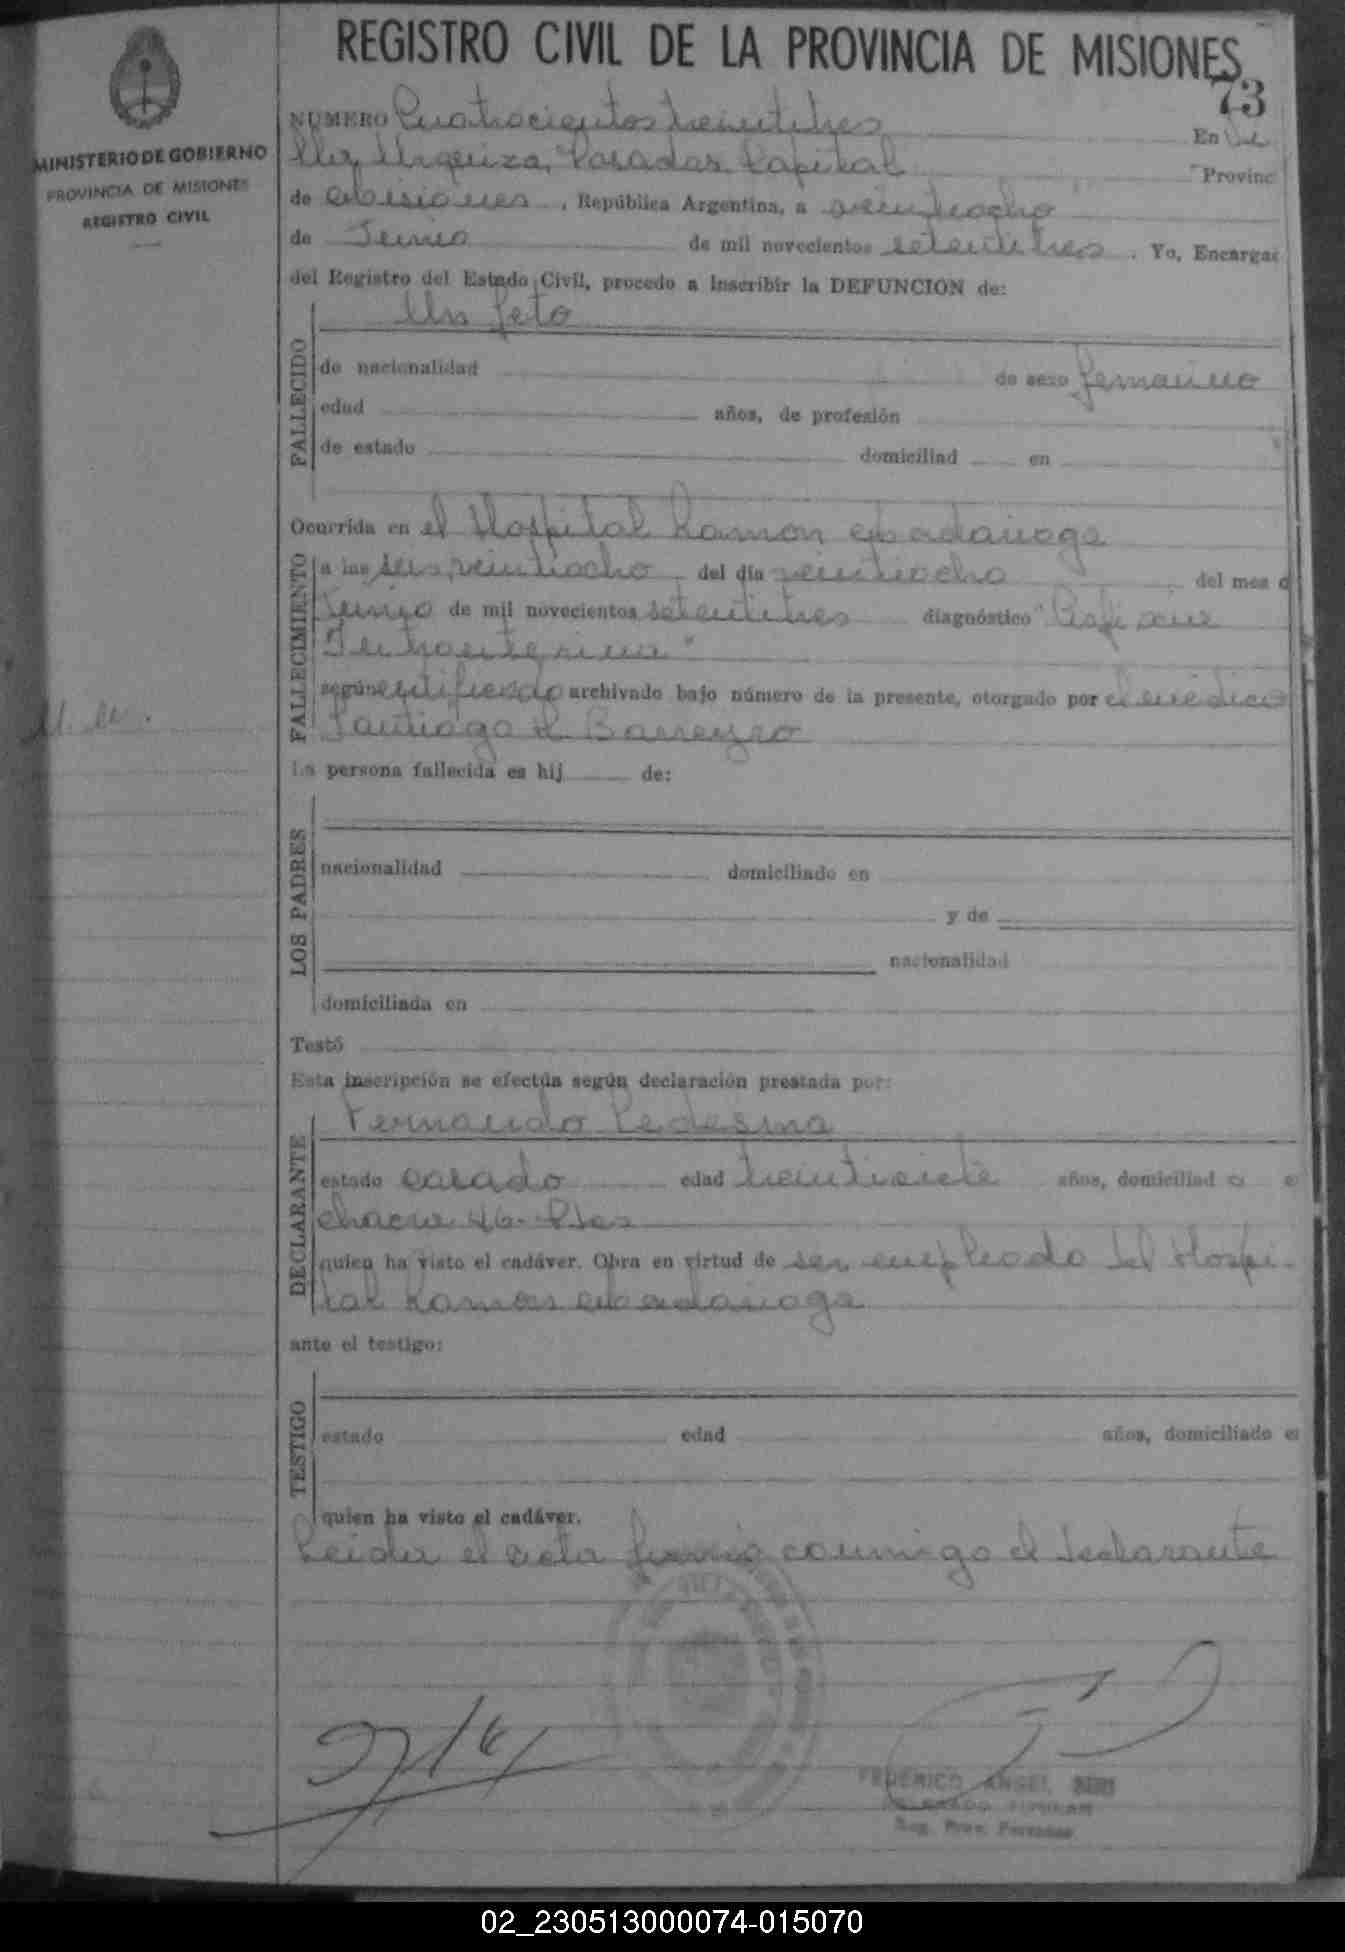 REGISTRO CIVIL DE LA PROVINCIA DE MISIONES
73
MINISTERIO DE GOBIERNO
PROVINCIA DE MISIONES
REGISTRO CIVIL
NUMERO Cuatrocientos treintitres En
Urquiza, Posadas Capital Provinc
de Misiones, República Argentina, a veintiocho
de Junio de mil novecientos setentitres. Yo, Encargad
del Registro del Estado Civil, procedo a inscribir la DEFUNCION de:
Un feto
FALLECIDO
de nacionalidad de sexo femenino
edad años, de profesión
de estado domiciliad en
Ocurrida en el Hospital Ramon Madariaga
FALLECIMIENTO
a las seis, veintiocho del día veintiocho del mes d
Junio de mil novecientos setentitres diagnóstico "Asfixia
Intrauterina"
según certificado archivado bajo número de la presente, otorgado por el medico
Santiago H. Barreyro
La persona fallecida es hij de:
LOS PADRES
nacionalidad domiciliado en
y de
nacionalidad
domiciliada en
Testó
Esta inscripción se efectúa según declaración prestada por:
DECLARANTE
Fernando Ledesma
estado casado edad treintisiete años, domiciliad o e
chacra 46-Pdas
quien ha visto el cadáver. Obra en virtud de ser empleado del Hospi-
tal Ramon Madariaga
ante el testigo:
TESTIGO
estado edad años, domiciliado e
quien ha visto el cadáver.
Leida el acta firmó conmigo el declarante
FEDERICO ANGEL
Reg. Prov. Personas
02_230513000074-015070